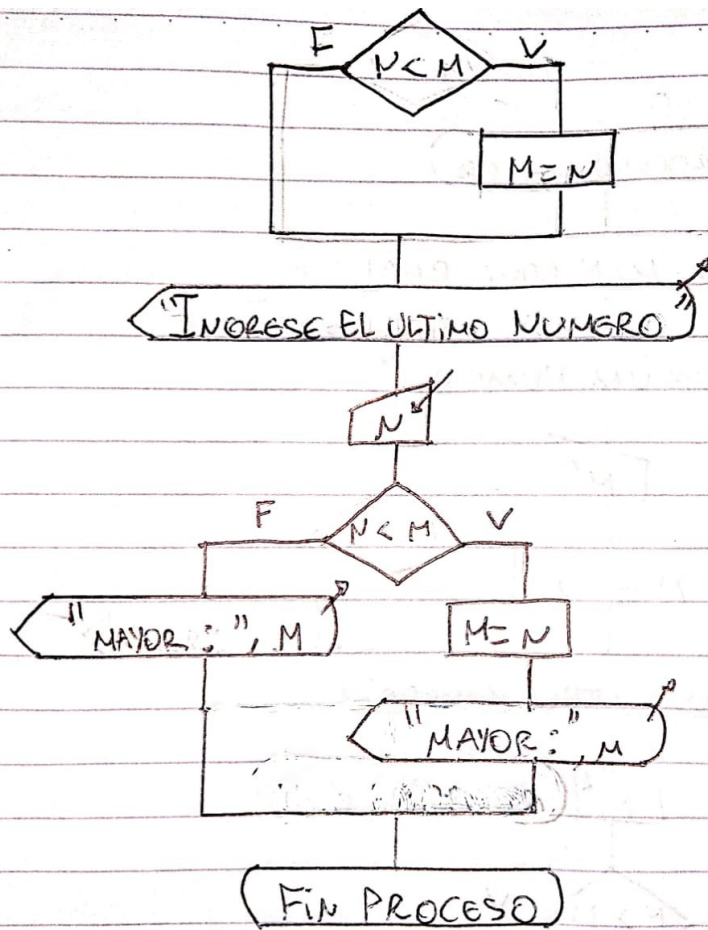 F N<M V
M=N
"INGRESE EL ULTIMO NUMERO"
N
F N<M V
"MAYOR:", M
M=N
"MAYOR:", M
FIN PROCESO